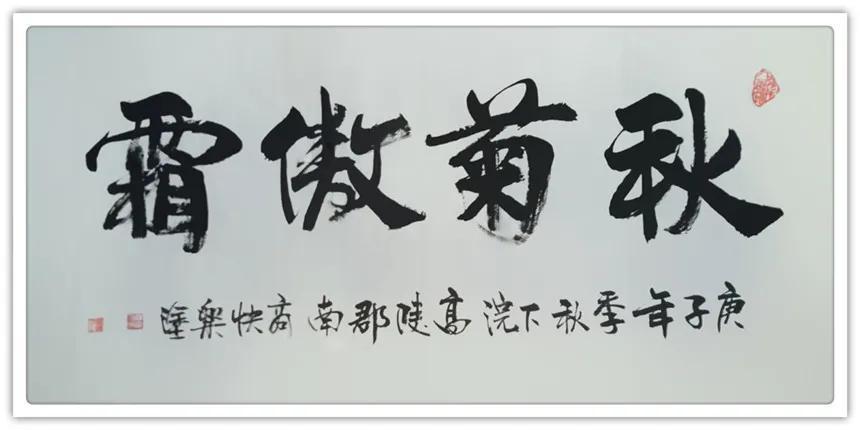 秋菊傲霜
庚子年季秋下浣高陵郡南商快樂塗